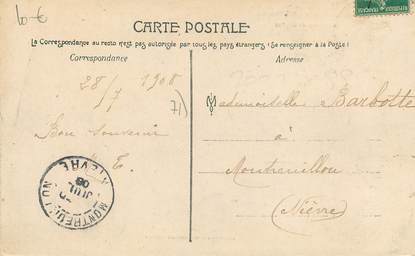 10 €
CARTE POSTALE
La Correspondance au recto n'est pas autorisée par tous les pays étrangers (Se renseigner à la Poste)
Correspondance
Adresse
28/7 1908
71)
Bon Souvenir
E.
Mademoiselle Barbotte
à
Montreuillon
(Nièvre)
NIÈVRE
JUIL
08